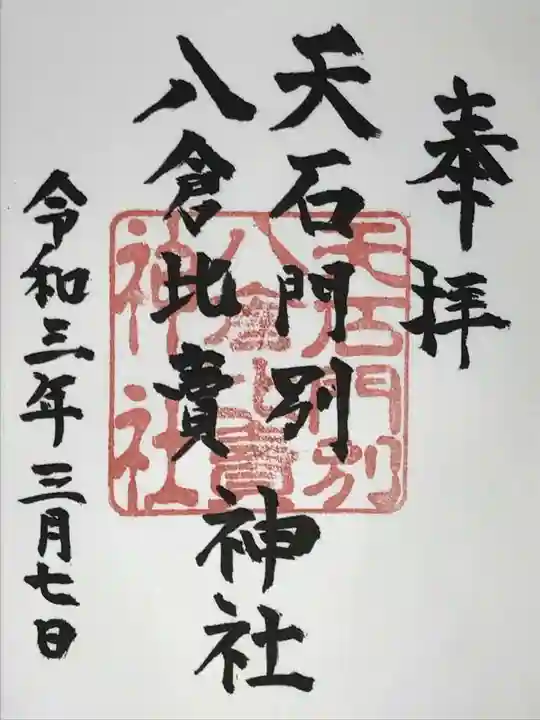 奉拝
天石門別
八倉比賣
神社
令和三年三月七日
天石門別
八倉比賣
神社